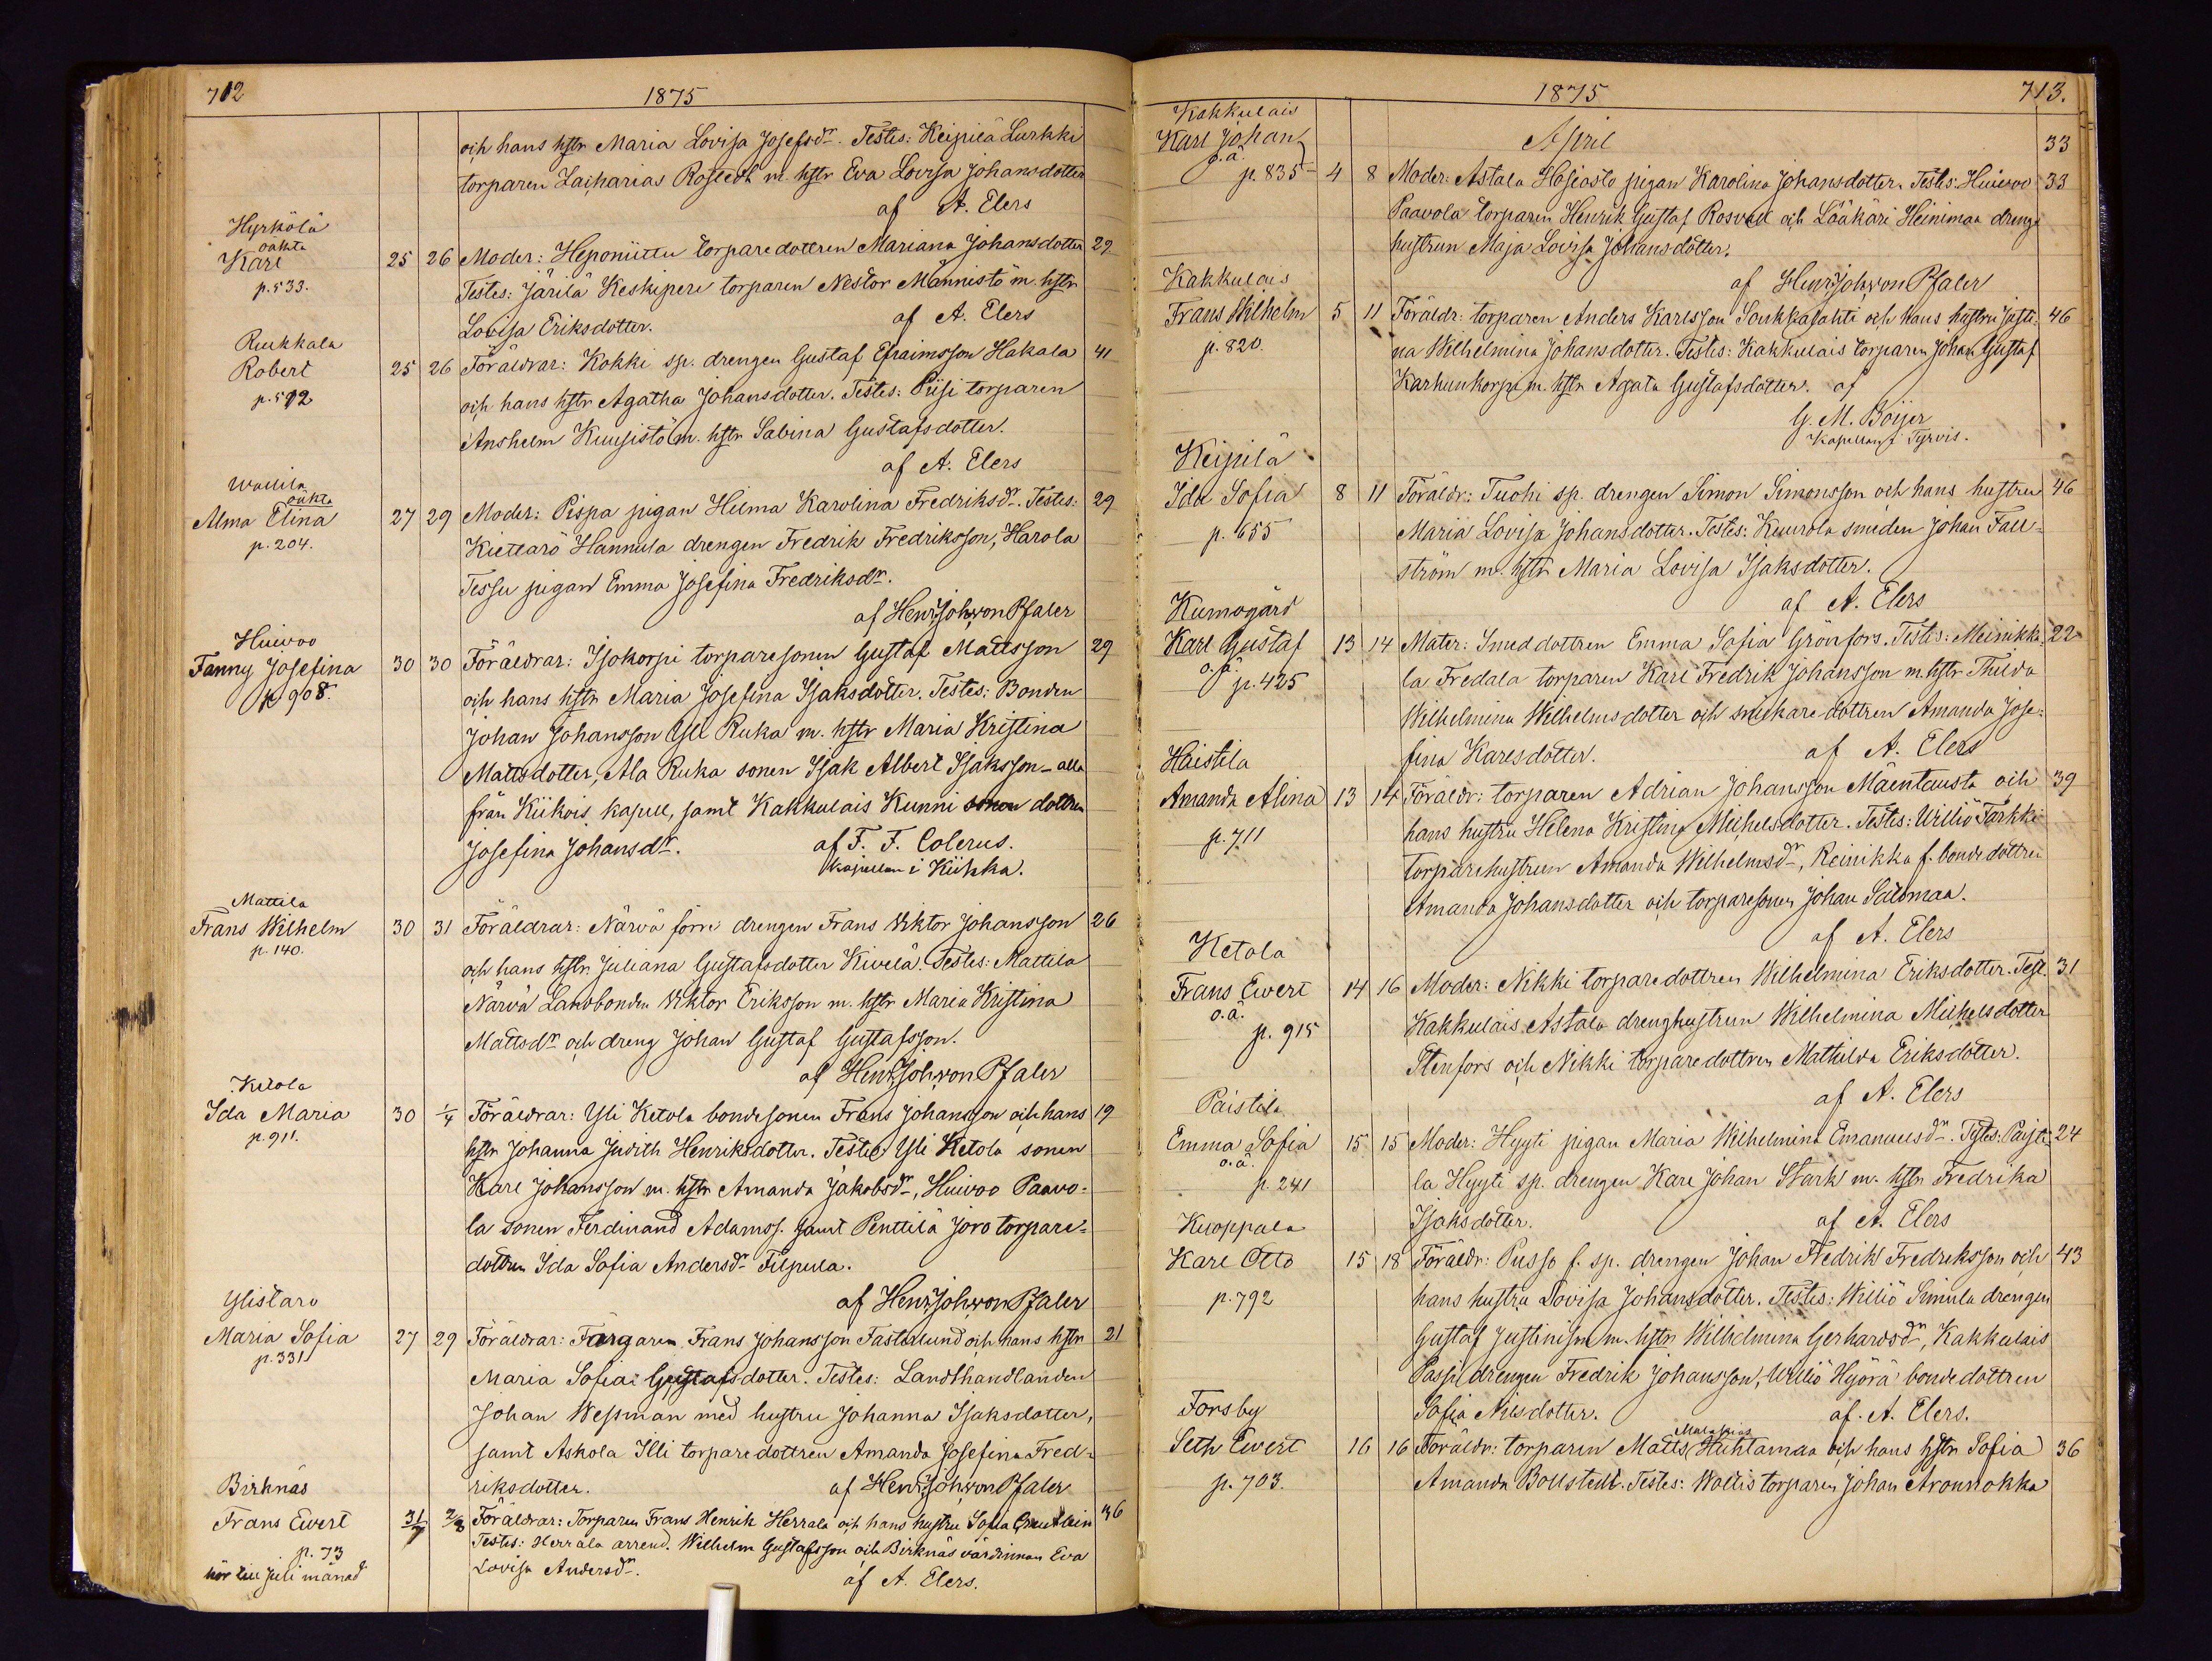 712
1875
och hans hstr Maria Lovisa Josefsdr. Testes: Keipilä Lurkki
torparen Zacharias Rostedt m. hstr Eva Lovisa Johansdotter
af A. Elers
Hyrkölä
oäkta
Karl 25 26 Moder: Heponiittu torparedottren Mariana Johansdotter 29
p. 533.
Testes: Järilä Keskipere torparen Nestor Mannistö m. hstr
Lovisa Eriksdotter. af A. Elers
Ruskkala
Robert 25 26 Föräldrar: Kokki sp. drengen Gustaf Efraimsson Hakala 41
p. 512
och hans hstr Agatha Johansdotter. Testes: Piisi torparen
Anshelm Kuusistö m. hstr Sabina Gustafsdotter.
af A. Elers
Wallila
oäkta
Alma Elina 27 29 Moder: Pispa pigan Hilma Karolina Fredriksdr. Testes: 29
p. 204.
Kiettarö Hannula drengen Fredrik Fredriksson, Harola
Tessu pigan Emma Josefina Fredriksdr.
af Henr. Joh. von Pfaler
Huivoo
Fanny Josefina 30 30 Föräldrar: Isokorpi torparesonen Gustaf Mattsson 29
p 908.
och hans hstr Maria Josefina Isaksdotter. Testes: Bonden
Johan Johansson Yli Ruka m. hstr Maria Kristina
Mattsdotter, Ala Ruka sonen Isak Albert Isaksson – alla
från Kiikois kapell, samt Kakkulais Kunni sonen dottren
Josefina Johansdr. af F. F. Colerus.
Kapellan i Kiikka.
Mattila
Frans Wilhelm 30 31 Föräldrar: Närvä förre drengen Frans Viktor Johansson 26
p. 140.
och hans hstr Juliana Gustafsdotter Kivelä. Testes: Mattila
Närvä Landbonden Viktor Eriksson m. hstr Maria Kristina
Mattsdr och dreng Johan Gustaf Gustafsson.
af Henr. Joh. von Pfaler
Ketola
Ida Maria 30 1/4 Föräldrar: Yli Ketola bondesonen Frans Johansson och hans 19
p. 911.
hstr Johanna Judith Henriksdotter. Testes Yli Ketola sonen
Karl Johansson m. hstr Amanda Jakobsdr, Huivoo Paavo-
la sonen Ferdinand Adamss. samt Penttilä Joro torpare-
dottren Ida Sofia Andersdr Filpula.
af Henr. Joh. von Pfaler
Ylistaro
Maria Sofia 27 29 Föräldrar: Färgaren Frans Johansson Fasterlund och hans hstr 21
p. 331
Maria Sofia Gustafsdotter. Testes: Landthandlanden
Johan Wessman med hustru Johanna Isaksdotter,
samt Askola Illi torparedottren Amanda Josefina Fred-
riksdotter. af Henr. Joh. von Pfaler
Birknäs
Frans Evert 31/7 2/8 Föräldrar: Torparen Frans Henrik Herrala och hans hustru Sofia 36
p. 73
Testes: Herrala arrend. Wilhelm Gustafsson och Birknäs värdinnan Eva
hör till Juli månad
Lovisa Andersdr.
af A. Elers.
1875
713.
April 33
Kakkulais
Karl Johan
o.ä.
p. 835 4 8 Moder: Astala Hosiasto pigan Karolina Johansdotter. Testes: Huivoo 33
Paavola torparen Henrik Gustaf Rosvall och Lääkäri Heinimaa dreng-
hustrun Maja Lovisa Johansdotter.
af Henr. Joh. von Pfaler
Kakkulais
Frans Wilhelm 5 11 Föräldr: torparen Anders Karlsson Soukkalahti och hans hustru Justi- 46
p. 820.
na Wilhelmina Johansdotter. Testes: Kakkulais torparen Johan Gustaf
Karhunkorpi m. hstr Agata Gustafsdotter. af
G. M. Boijer
Kapellan i Tyrvis.
Keipilä
Ida Sofia 8 11 Föräldr: Tuohi sp. drengen Simon Simonsson och hans hustru 46
p. 655
Maria Lovisa Johansdotter. Testes: Kuurola smeden Johan Fall-
ström m. hstr Maria Lovisa Isaksdotter.
af A. Elers
Kumogård
Karl Gustaf 13 14 Mater: Smeddottren Emma Sofia Grönfors. Testes: Meinikka- 22
o.ä.
p. 425
la Fredala torparen Karl Fredrik Johansson m. hstr Thilda
Wilhelmina Wilhelmsdotter och snickaredottren Amanda Jose-
fina Karlsdotter. af A. Elers
Haistila
Amanda Alina 13 14 Föräldr: torparen Adrian Johansson Mäentausta och 39
p. 711
hans hustru Helena Kristina Michelsdotter. Testes: Williö Tarkki
torparehustrun Amanda Wilhelmsdr, Reinikka f. bondedottren
Amanda Johansdotter och torparesonen Johan Salomaa.
af A. Elers
Ketola
Frans Evert 14 16 Moder: Nikki torparedottren Wilhelmina Eriksdotter. Test. 31
o.ä.
p. 915
Kakkulais Astala drenghustrun Wilhelmina Michelsdotter
Stenfors och Nikki torparedottren Mathilda Eriksdotter.
af A. Elers
Paistila
Emma Sofia 15 15 Moder: Hyyti pigan Maria Wilhelmina Emanuelsdr. Testes: Paist- 24
o.ä.
p. 241
la Hyyti sp. drengen Karl Johan Stark m. hstr Fredrika
Isaksdotter. af A. Elers
Kuoppala
Karl Otto 15 18 Föräldr: Pusso f. sp. drengen Johan Fredrik Fredriksson och 43
p. 792
hans hustru Lovisa Johansdotter. Testes: Williö Simula drengen
Gustaf Justinisson m. hstr Wilhelmina Gerhardsdr, Kakkulais
Passi drengen Fredrik Johansson, Williö Hyörä bondedottren
Sofia Nilsdotter. af. A. Elers.
Forsby
Malakias
Seth Evert 16 16 Föräldr: torparen Matts Huhtamaa och hans hstr Sofia 36
p. 703.
Amanda Bollstedt. Testes: Wallis torparen Johan Aronnokka